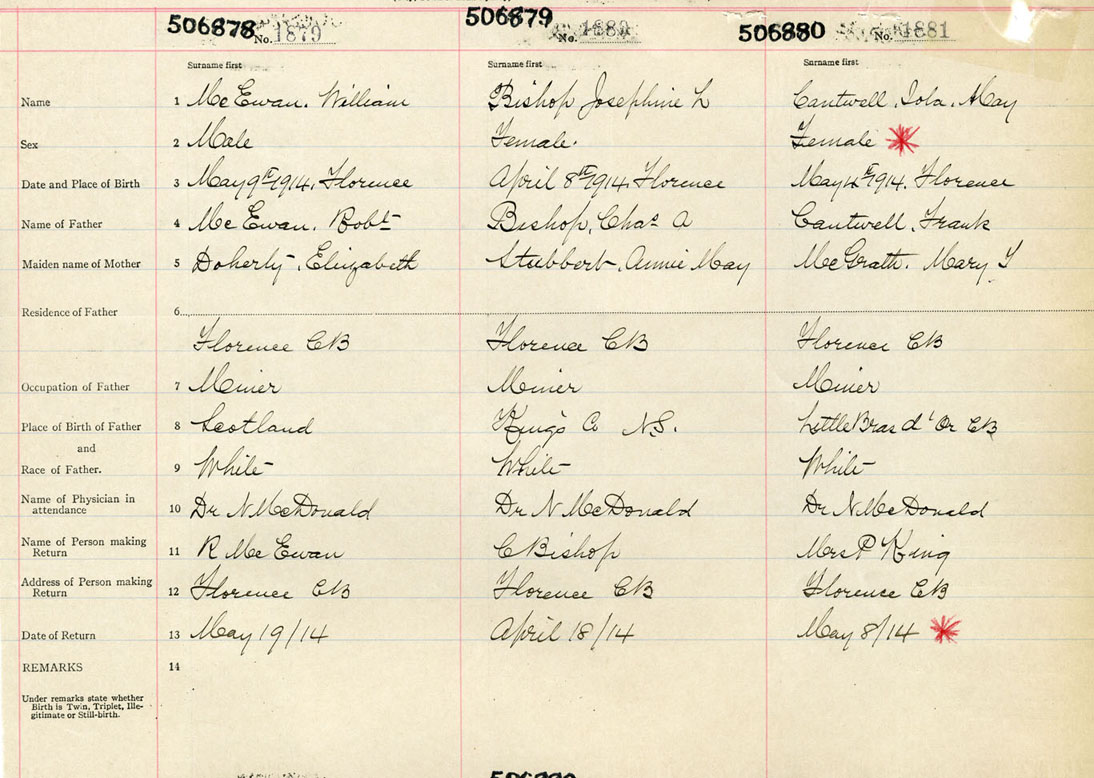 506878 No. 1879 506879 No. 1880 506880 No. 1881
Surname first Surname first Surname first
Name 1 McEwan. William Bishop Josephine L Cantwell, Iola. May
Sex 2 Male Female. Female
Date and Place of Birth 3 May 9th 1914. Florence April 8th 1914, Florence May 4th 1914. Florence
Name of Father 4 McEwan. Robt Bishop, Chas A Cantwell, Frank
Maiden name of Mother 5 Doherty, Elizabeth Stubbert, Annie May McGrath. Mary J
Residence of Father 6
Florence CB Florence CB Florence CB
Occupation of Father 7 Miner Miner Miner
Place of Birth of Father 8 Scotland Kings Co N.S. Little Bras d'Or CB
and
Race of Father. 9 White White White
Name of Physician in
attendance 10 Dr N McDonald Dr N McDonald Dr N McDonald
Name of Person making
Return 11 R McEwan C Bishop Mrs P King
Address of Person making
Return 12 Florence CB Florence CB Florence CB
Date of Return 13 May 19/14 April 18/14 May 8/14
REMARKS 14
Under remarks state whether
Birth is Twin, Triplet, Ille-
gitimate or Still-birth.